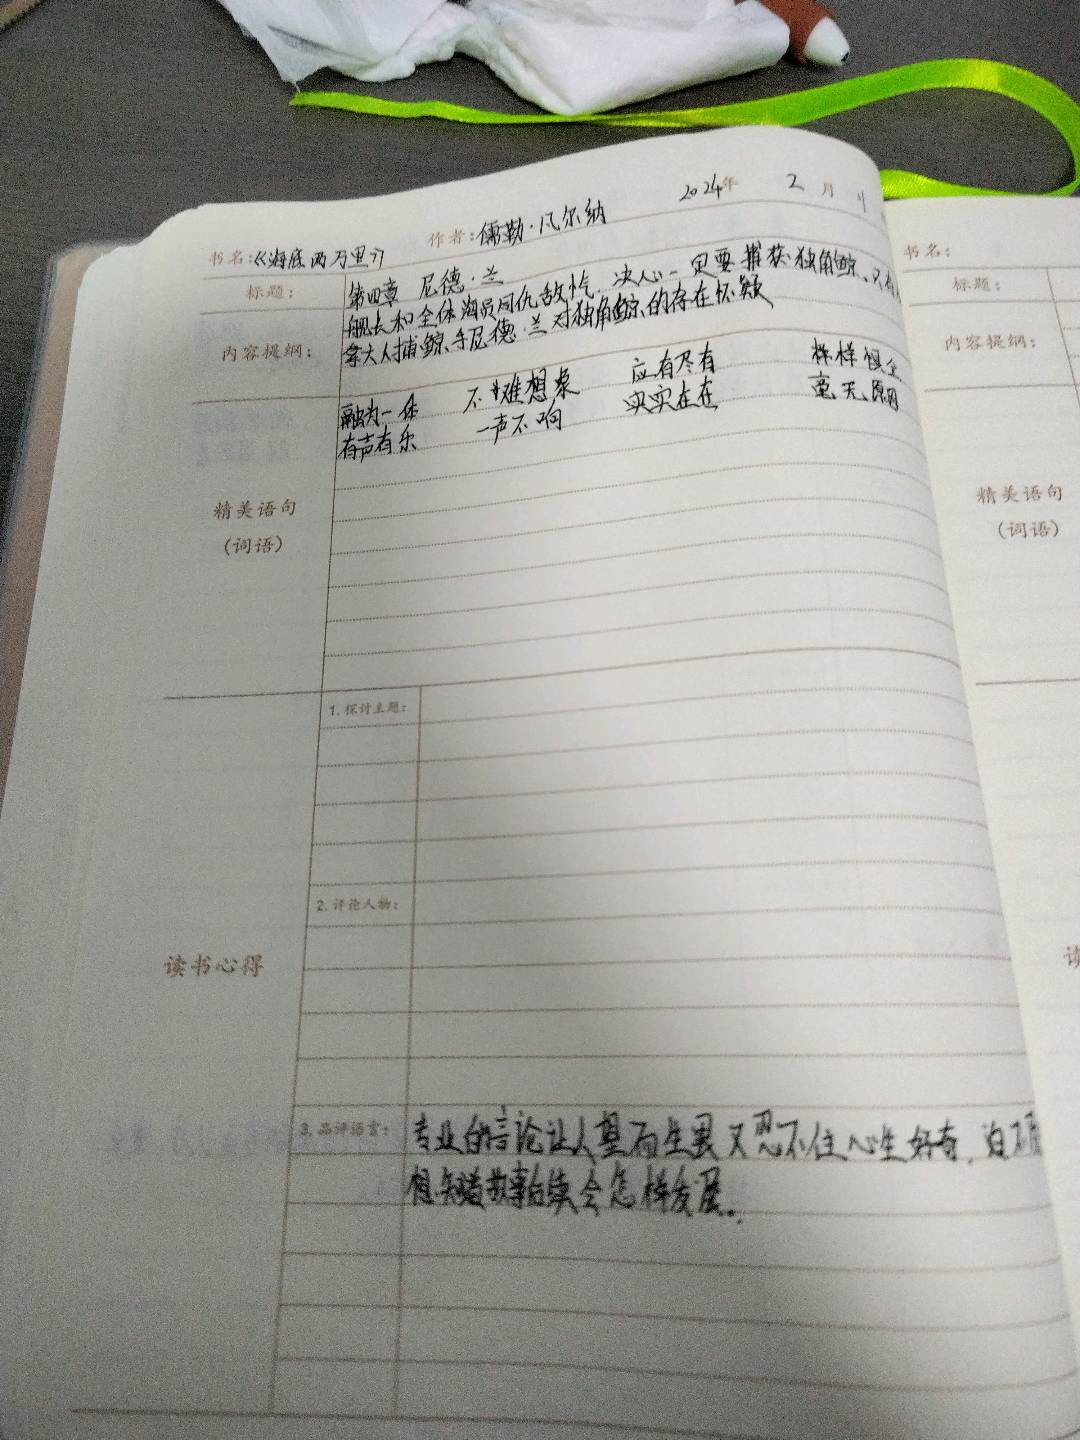 2024年 2月
书名:《海底两万里》 作者:儒勒·凡尔纳
标题: 第四章 尼德·兰
舰长和全体海员同仇敌忾,决心一定要捕获独角鲸,只有
内容提纲: 拿大人捕鲸手尼德·兰对独角鲸的存在怀疑
融为一体 不难想象 应有尽有 样样俱全
有声有乐 一声不响 实实在在 毫无原因
精美语句
(词语)
1.探讨主题:
2.评论人物:
读书心得
3.品评语言: 专业的言论让人望而生畏又忍不住心生好奇,迫不
想知道故事后续会怎样发展。
书名:
标题:
内容提纲:
精美语句
(词语)
读